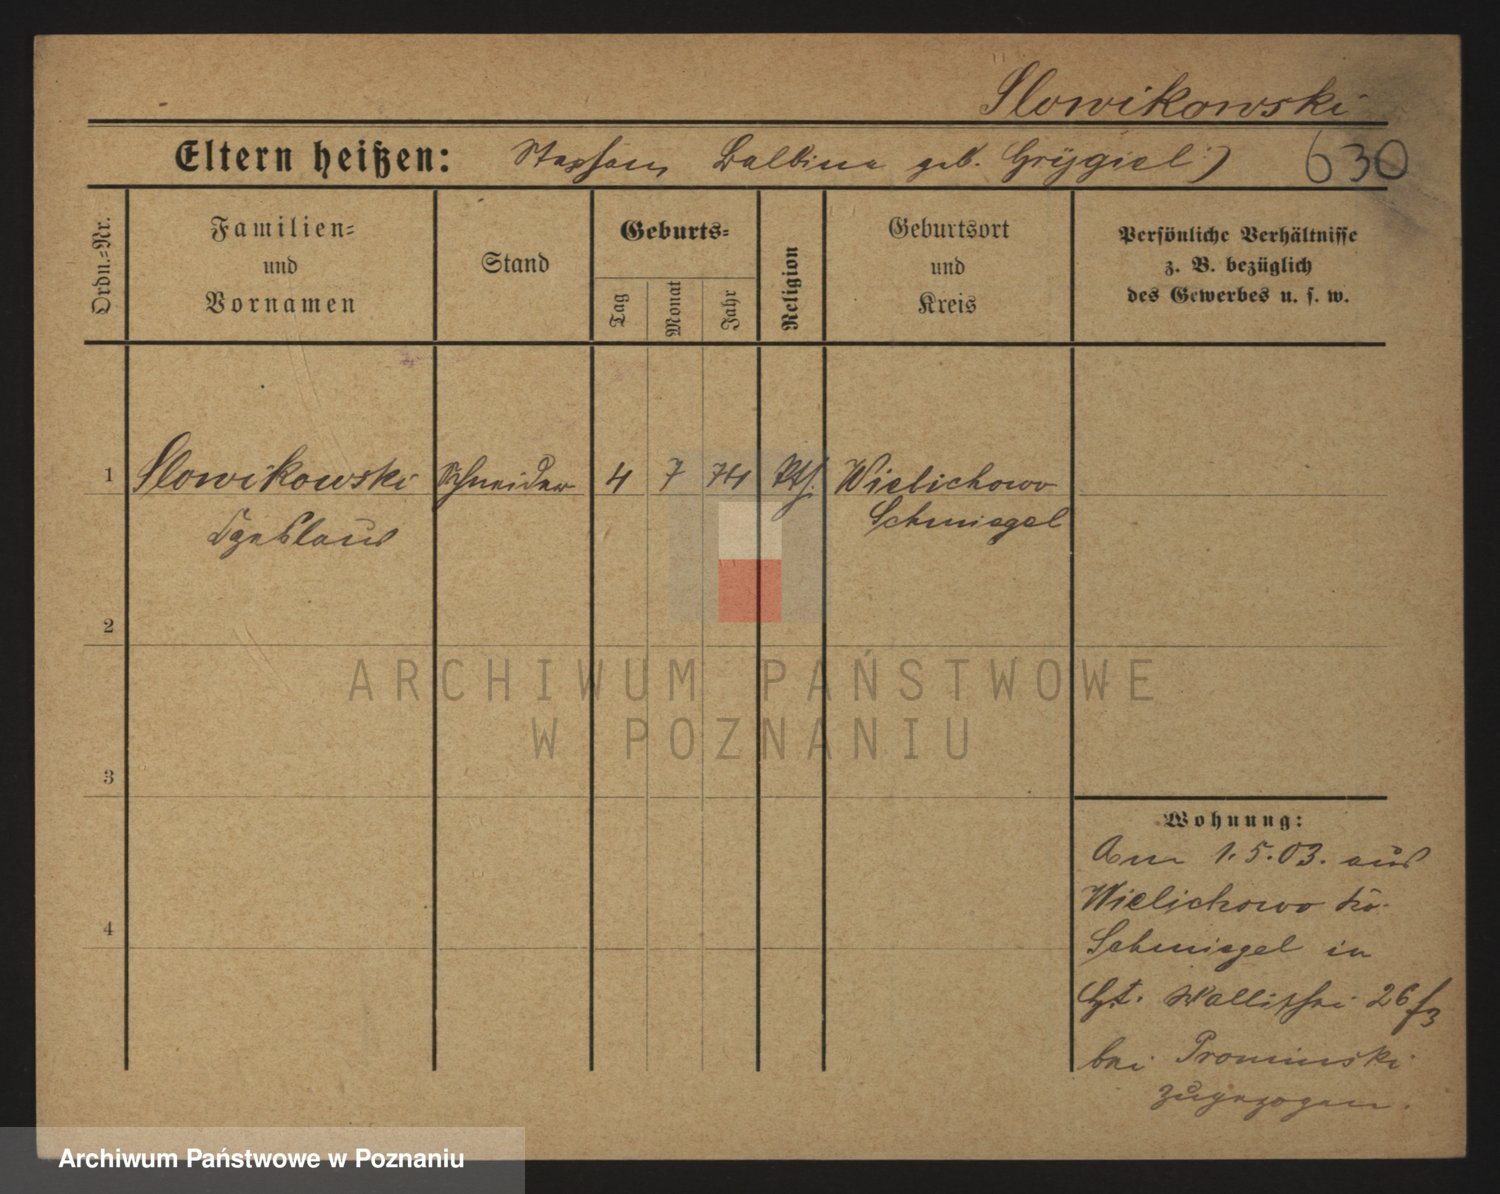 Slowikowski
Eltern heißen: Stephan, Balbina geb. Grygiel)
630
Ordn.=Nr.
Familien=
und
Vornamen
Stand
Geburts=
Tag
Monat
Jahr
Religion
Geburtsort
und
Kreis
Persönliche Verhältnisse
z. B. bezüglich
des Gewerbes u. s. w.
1 Slowikowski Schneider 4 7 74 kth. Wielichowo
Schmiegel
2
3
4
ARCHIWUM PAŃSTWOWE
W POZNANIU
Wohnung:
Am 1.5.03. aus
Wielichowo
Schmiegel in
Wallischei 26
bei Prominski
zugezogen.
Archiwum Państwowe w Poznaniu